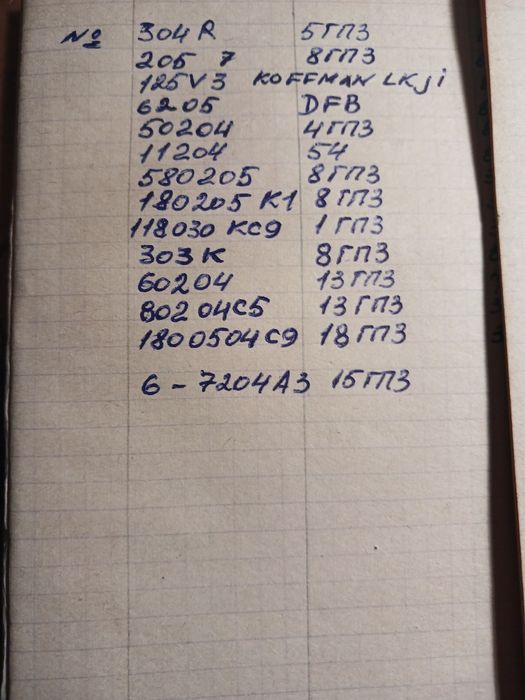 № 304R 5ГПЗ
205 7 8ГПЗ
125V3 KOFFMAN LKji
6205 DFB
50204 4ГПЗ
11204 54
580205 8ГПЗ
180205 K1 8ГПЗ
118030 KC9 1ГПЗ
303K 8ГПЗ
60204 13ГПЗ
80204C5 13ГПЗ
1800504C9 18ГПЗ
6-7204A3 15ГПЗ